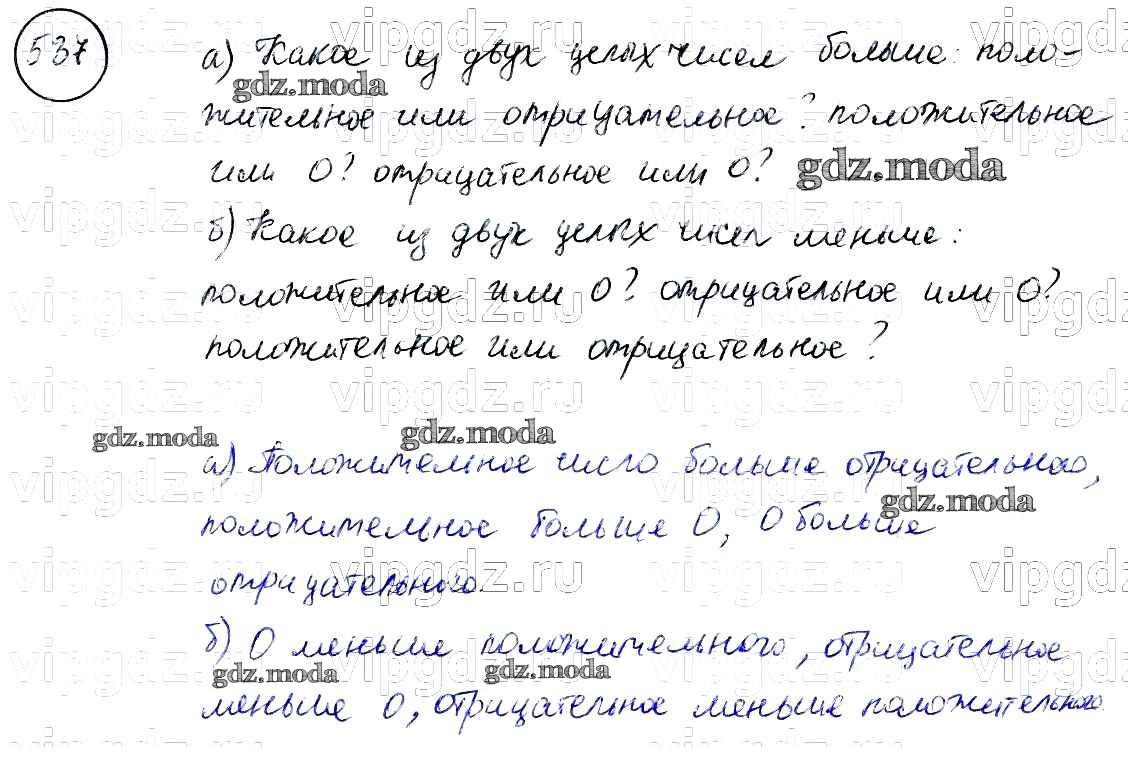 537
а) Какое из двух целых чисел больше: поло-
жительное или отрицательное? положительное
или 0? отрицательное или 0?
б) Какое из двух целых чисел меньше:
положительное или 0? отрицательное или 0?
положительное или отрицательное?
а) Положительное число больше отрицательного,
положительное больше 0, 0 больше
отрицательного.
б) 0 меньше положительного, отрицательное
меньше 0, отрицательное меньше положительного.
gdz.moda
vipgdz.ru